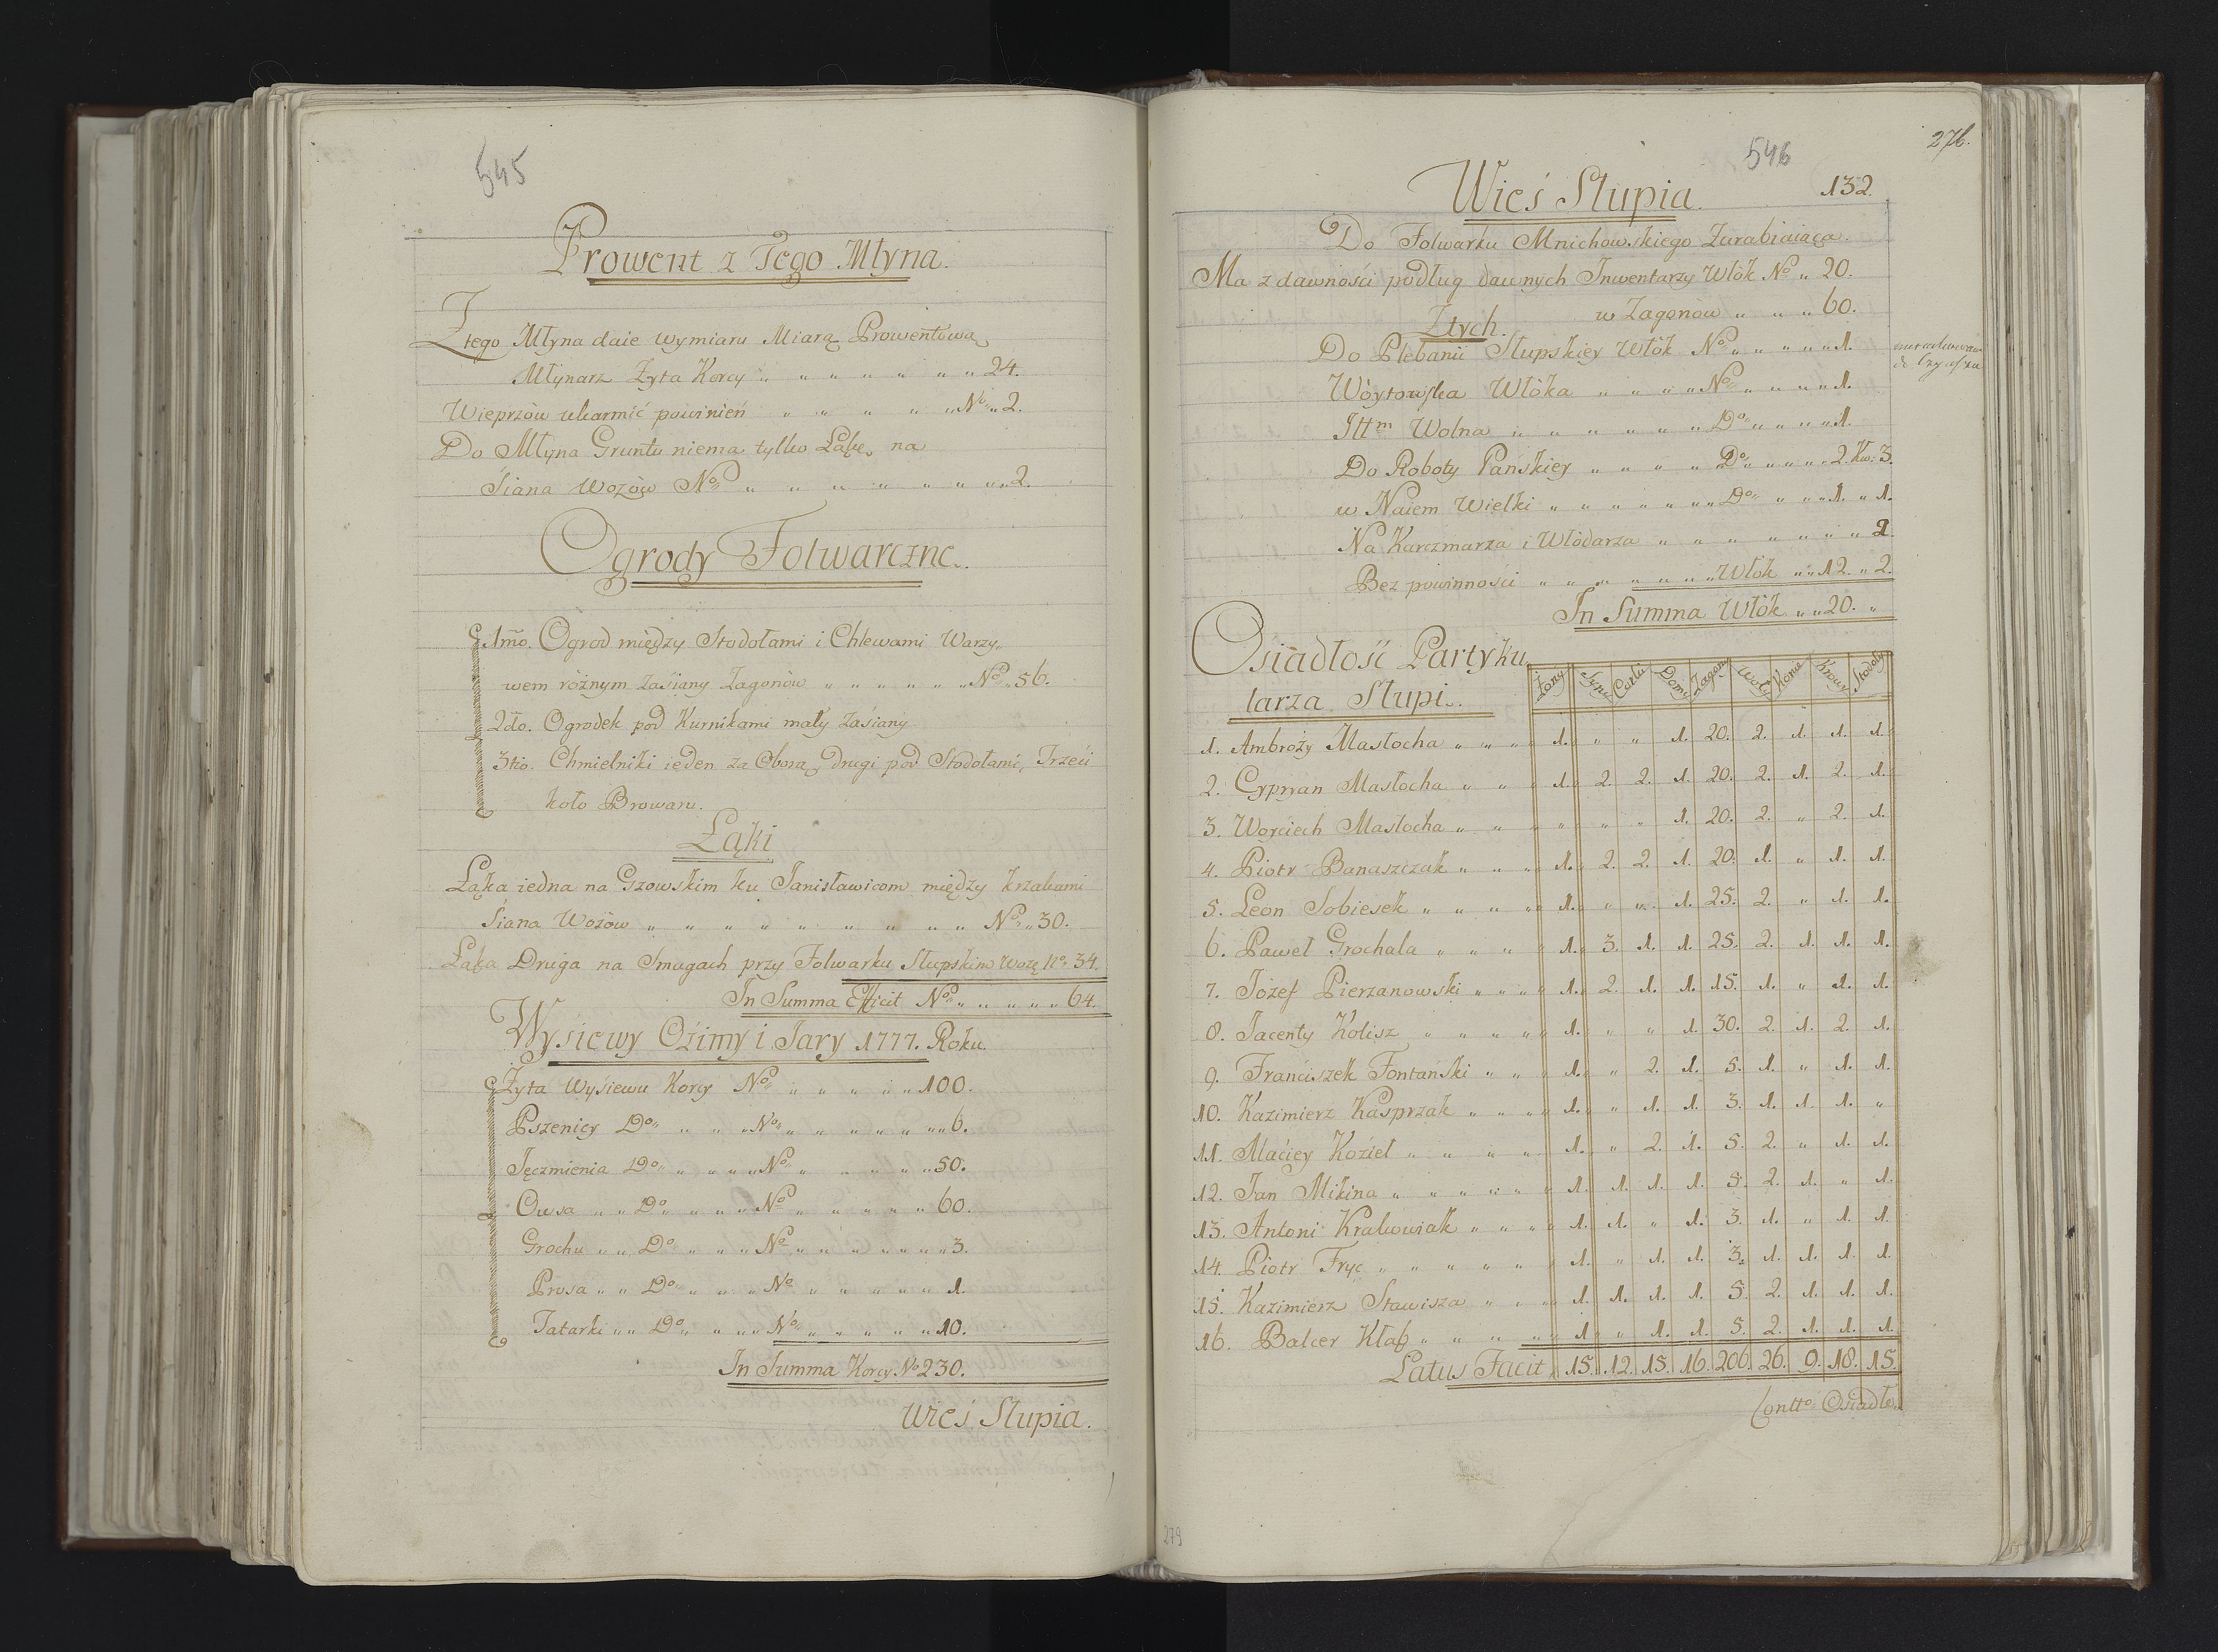 545
Prowent z Tego Młyna.
Z tego Młyna daie wymiaru Miarą Prowentową
Młynarz Żyta Korcy „ „ „ „ „ „ „ 24.
Wieprzów ukarmić powinień „ „ „ „ „ No „ 2.
Do Młyna Gruntu niema tylko Łąkę na
Siana Wozów No „ „ „ „ „ „ „ „ 2.
Ogrody Folwarczne.
1mo. Ogrod między Stodołami i Chlewami Warzy„
wem różnym Zasiany Zagonów „ „ „ „ „ No „ 56.
2do. Ogrodek pod Kurnikami mały Zasiany
3tio. Chmielniki ieden za Oborą, drugi pod Stodołami, Trzeci
koło Browaru.
Łąki
Łąka iedna na Gzowskim ku Janisławicom między krzakami
Siana Wozów „ „ „ „ „ „ „ „ „ No „ 30.
Łąka Druga na Smugach przy Folwarku Słupskim Wozę No 34.
In Summa Efficit No „ „ „ „ „ 64.
Wysiewy Ozimy i Jary 1777. Roku.
Żyta Wysiewu Korcy No „ „ „ „ „ 100.
Pszenicy Do „ „ „ No „ „ „ „ „ „ 6.
Jęczmienia Do „ „ „ „ No „ „ „ „ „ 50.
Owsa „ „ Do „ „ „ „ No „ „ „ „ „ 60.
Grochu „ „ Do „ „ „ „ No „ „ „ „ „ „ 3.
Prosa „ „ Do „ „ „ „ No „ „ „ „ „ „ 1.
Tatarki „ „ Do „ „ „ „ No „ „ „ „ „ „ 10.
In Summa Korcy No 230.
Wieś Słupia.
276.
546
Wieś Słupia. 132.
Do Folwarku Mnichowskiego Zarabiaiąca.
Ma z dawności podług dawnych Inwentarzy Włók No „ 20.
Z tych. w Zagonów „ „ „ 60.
Do Plebanii Słupskiey Włók No „ „ „ „ „ 1.
Wóytowska Włóka „ „ „ „ No „ „ „ „ 1.
Ittm Wolna „ „ „ „ „ „ „ Do „ „ „ „ 1.
Do Roboty Pańskiey „ „ „ „ Do „ „ „ „ „ 2. Kw: 3.
w Naiem Wielki „ „ „ „ „ „ „ Do „ „ „ 1. „ 1.
Na Karczmarza i Włodarza „ „ „ „ „ „ „ 2.
Bez powinności „ „ „ „ „ „ „ Włók „ „ 12. „ 2.
In Summa Włók „ „ 20. „
Osiadłość Partyku„
larza Słupi.
Żony Syny Corki Domy Zagony Woły Konie Krowy Stodoły
1. Ambroży Masłocha „ „ „ „ 1. „ „ 1. 20. 2. 1. 1. 1.
2. Cypryan Masłocha „ „ „ 1. 2. 2. 1. 20. 2. 1. 2. 1.
3. Woyciech Masłocha „ „ „ „ „ „ 1. 20. 2. „ 2. 1.
4. Piotr Banaszczak „ „ „ „ 1. 2. 2. 1. 20. 1. „ 1. 1.
5. Leon Sobiesek „ „ „ „ „ 1. „ „ 1. 25. 2. „ 1. 1.
6. Paweł Grochala „ „ „ „ 1. 3. 1. 1. 25. 2. 1. 1. 1.
7. Józef Pierzanowski „ „ „ „ 1. 2. 1. 1. 15. 1. „ 1. 1.
8. Jacenty Kolisz „ „ „ „ „ 1. „ „ 1. 30. 2. 1. 2. 1.
9. Franciszek Fontański „ „ „ 1. „ 2. 1. 5. 1. „ 1. 1.
10. Kazimierz Kasprzak „ „ „ „ 1. „ 1. 1. 3. 1. 1. 1. „
11. Maciey Kozieł „ „ „ „ 1. „ 2. 1. 5. 2. „ 1. 1.
12. Jan Mikina „ „ „ „ „ „ 1. 1. 1. 1. 5. 2. 1. „ 1.
13. Antoni Krakowiak „ „ „ „ 1. 1. „ 1. 3. 1. „ 1. 1.
14. Piotr Fryc „ „ „ „ „ „ 1. „ 1. 1. 3. 1. 1. 1. 1.
15. Kazimierz Stawisza „ „ „ 1. 1. 1. 1. 5. 2. 1. 1. 1.
16. Balcer Kłąb „ „ „ „ „ 1. „ 1. 1. 5. 2. 1. 1. 1.
Latus Facit 15. 12. 15. 16. 206. 26. 9. 18. 15.
Contto Osiadło„
279